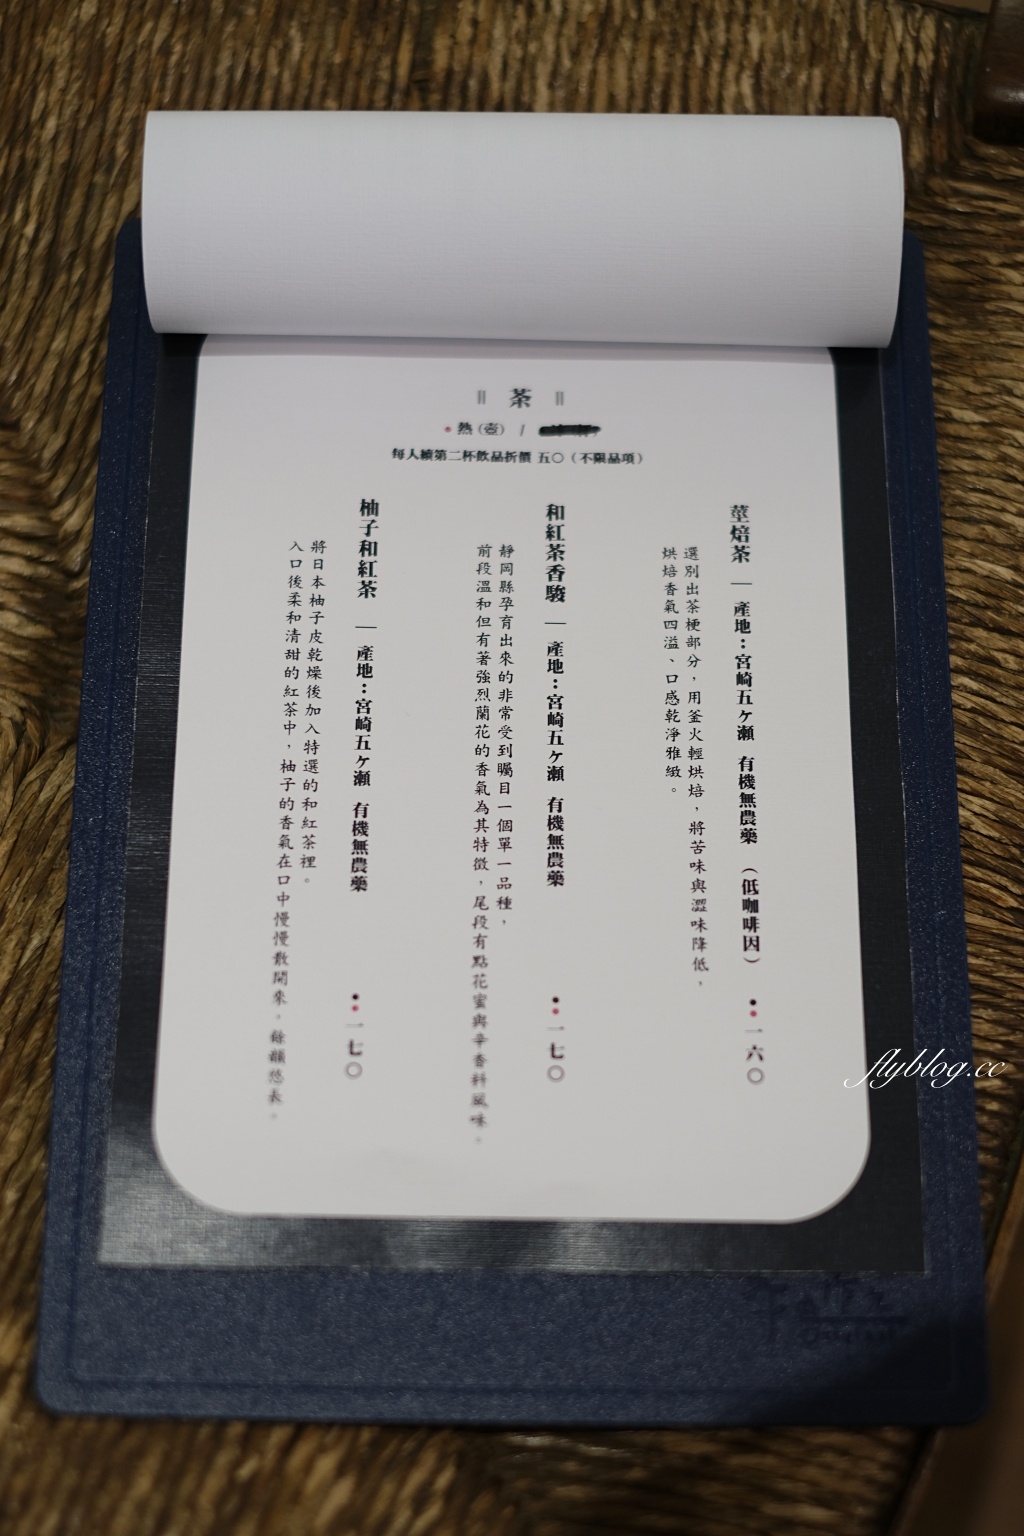 茶
熱(壺) /
每人續第二杯飲品折價 五〇(不限品項)
莖焙茶 — 產地:宮崎五ヶ瀨 有機無農藥 (低咖啡因) 一六〇
選別出茶梗部分,用釜火輕烘焙,將苦味與澀味降低,
烘焙香氣四溢、口感乾淨雅緻。
和紅茶香駿 — 產地:宮崎五ヶ瀨 有機無農藥 一七〇
靜岡縣孕育出來的非常受到矚目一個單一品種,
前段溫和但有著強烈蘭花的香氣為其特徵,尾段有點花蜜與辛香料風味。
柚子和紅茶 — 產地:宮崎五ヶ瀨 有機無農藥 一七〇
將日本柚子皮乾燥後加入特選的和紅茶裡。
入口後柔和清甜的紅茶中,柚子的香氣在口中慢慢散開來,餘韻悠長。
flyblog.cc